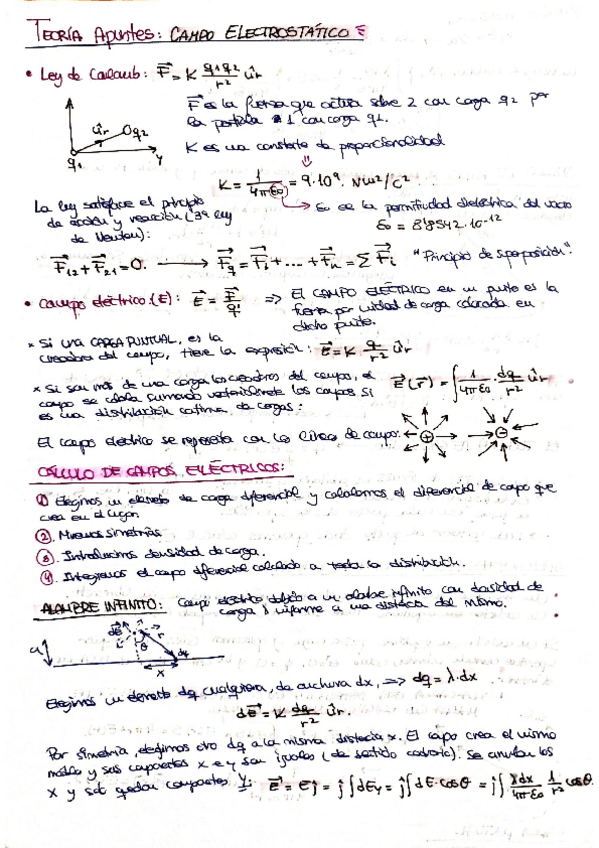 TEORÍA Apuntes: CAMPO ELECTROSTÁTICO
• Ley de Coulomb: F = K q1·q2/r² ûr
F es la fuerza que actúa sobre 2 con carga q2 por
la partícula 1 con carga q1.
ûr q2
q1 y
K es una constante de proporcionalidad
K = 1/4πε0 = 9·10⁹ Nm²/C²
ε0 es la permitividad dieléctrica del vacío
ε0 = 8'8542·10⁻¹²
La ley satisface el principio
de acción y reacción (3ª ley
de Newton):
F12 + F21 = 0. → Fq = Fi + ... + Fn = Σ Fi "Principio de superposición".
• Campo eléctrico (E): E = F/q ⇒ El CAMPO ELÉCTRICO en un punto es la
fuerza por unidad de carga colocada en
dicho punto.
* Si una CARGA PUNTUAL, es la
creadora del campo, tiene la expresión: E = K q/r² ûr
* Si son más de una carga los creadores del campo, el
campo se calcula sumando vectorialmente los campos si
es una distribución continua de cargas:
E(r) = ∫ 1/4πε0 · dq/r² ûr
El campo eléctrico se representa con las líneas de campo: + -
CÁLCULO DE CAMPOS ELÉCTRICOS:
① Elegimos un elemento de carga diferencial y calculamos el diferencial de campo que
crea en el lugar.
②. Miramos simetrías
③. Introducimos densidad de carga.
④. Integramos el campo diferencial calculado a toda la distribución.
ALAMBRE INFINITO: Campo eléctrico debido a un alambre infinito con densidad de
carga λ uniforme a una distancia del mismo.
dE r θ dq
a x
Elegimos un elemento dq cualquiera, de anchura dx, ⇒ dq = λ·dx
dE = K dq/r² ûr.
Por simetría, elegimos otro dq a la misma distancia x. El campo crea el mismo
módulo y sus componentes x e y son iguales (de sentido contrario). Se anulan los
x y solo quedan componentes y: E = Ej = ĵ∫dEy = ĵ∫dE·cosθ = ĵ∫ λdx/4πε0 1/r² cosθ.